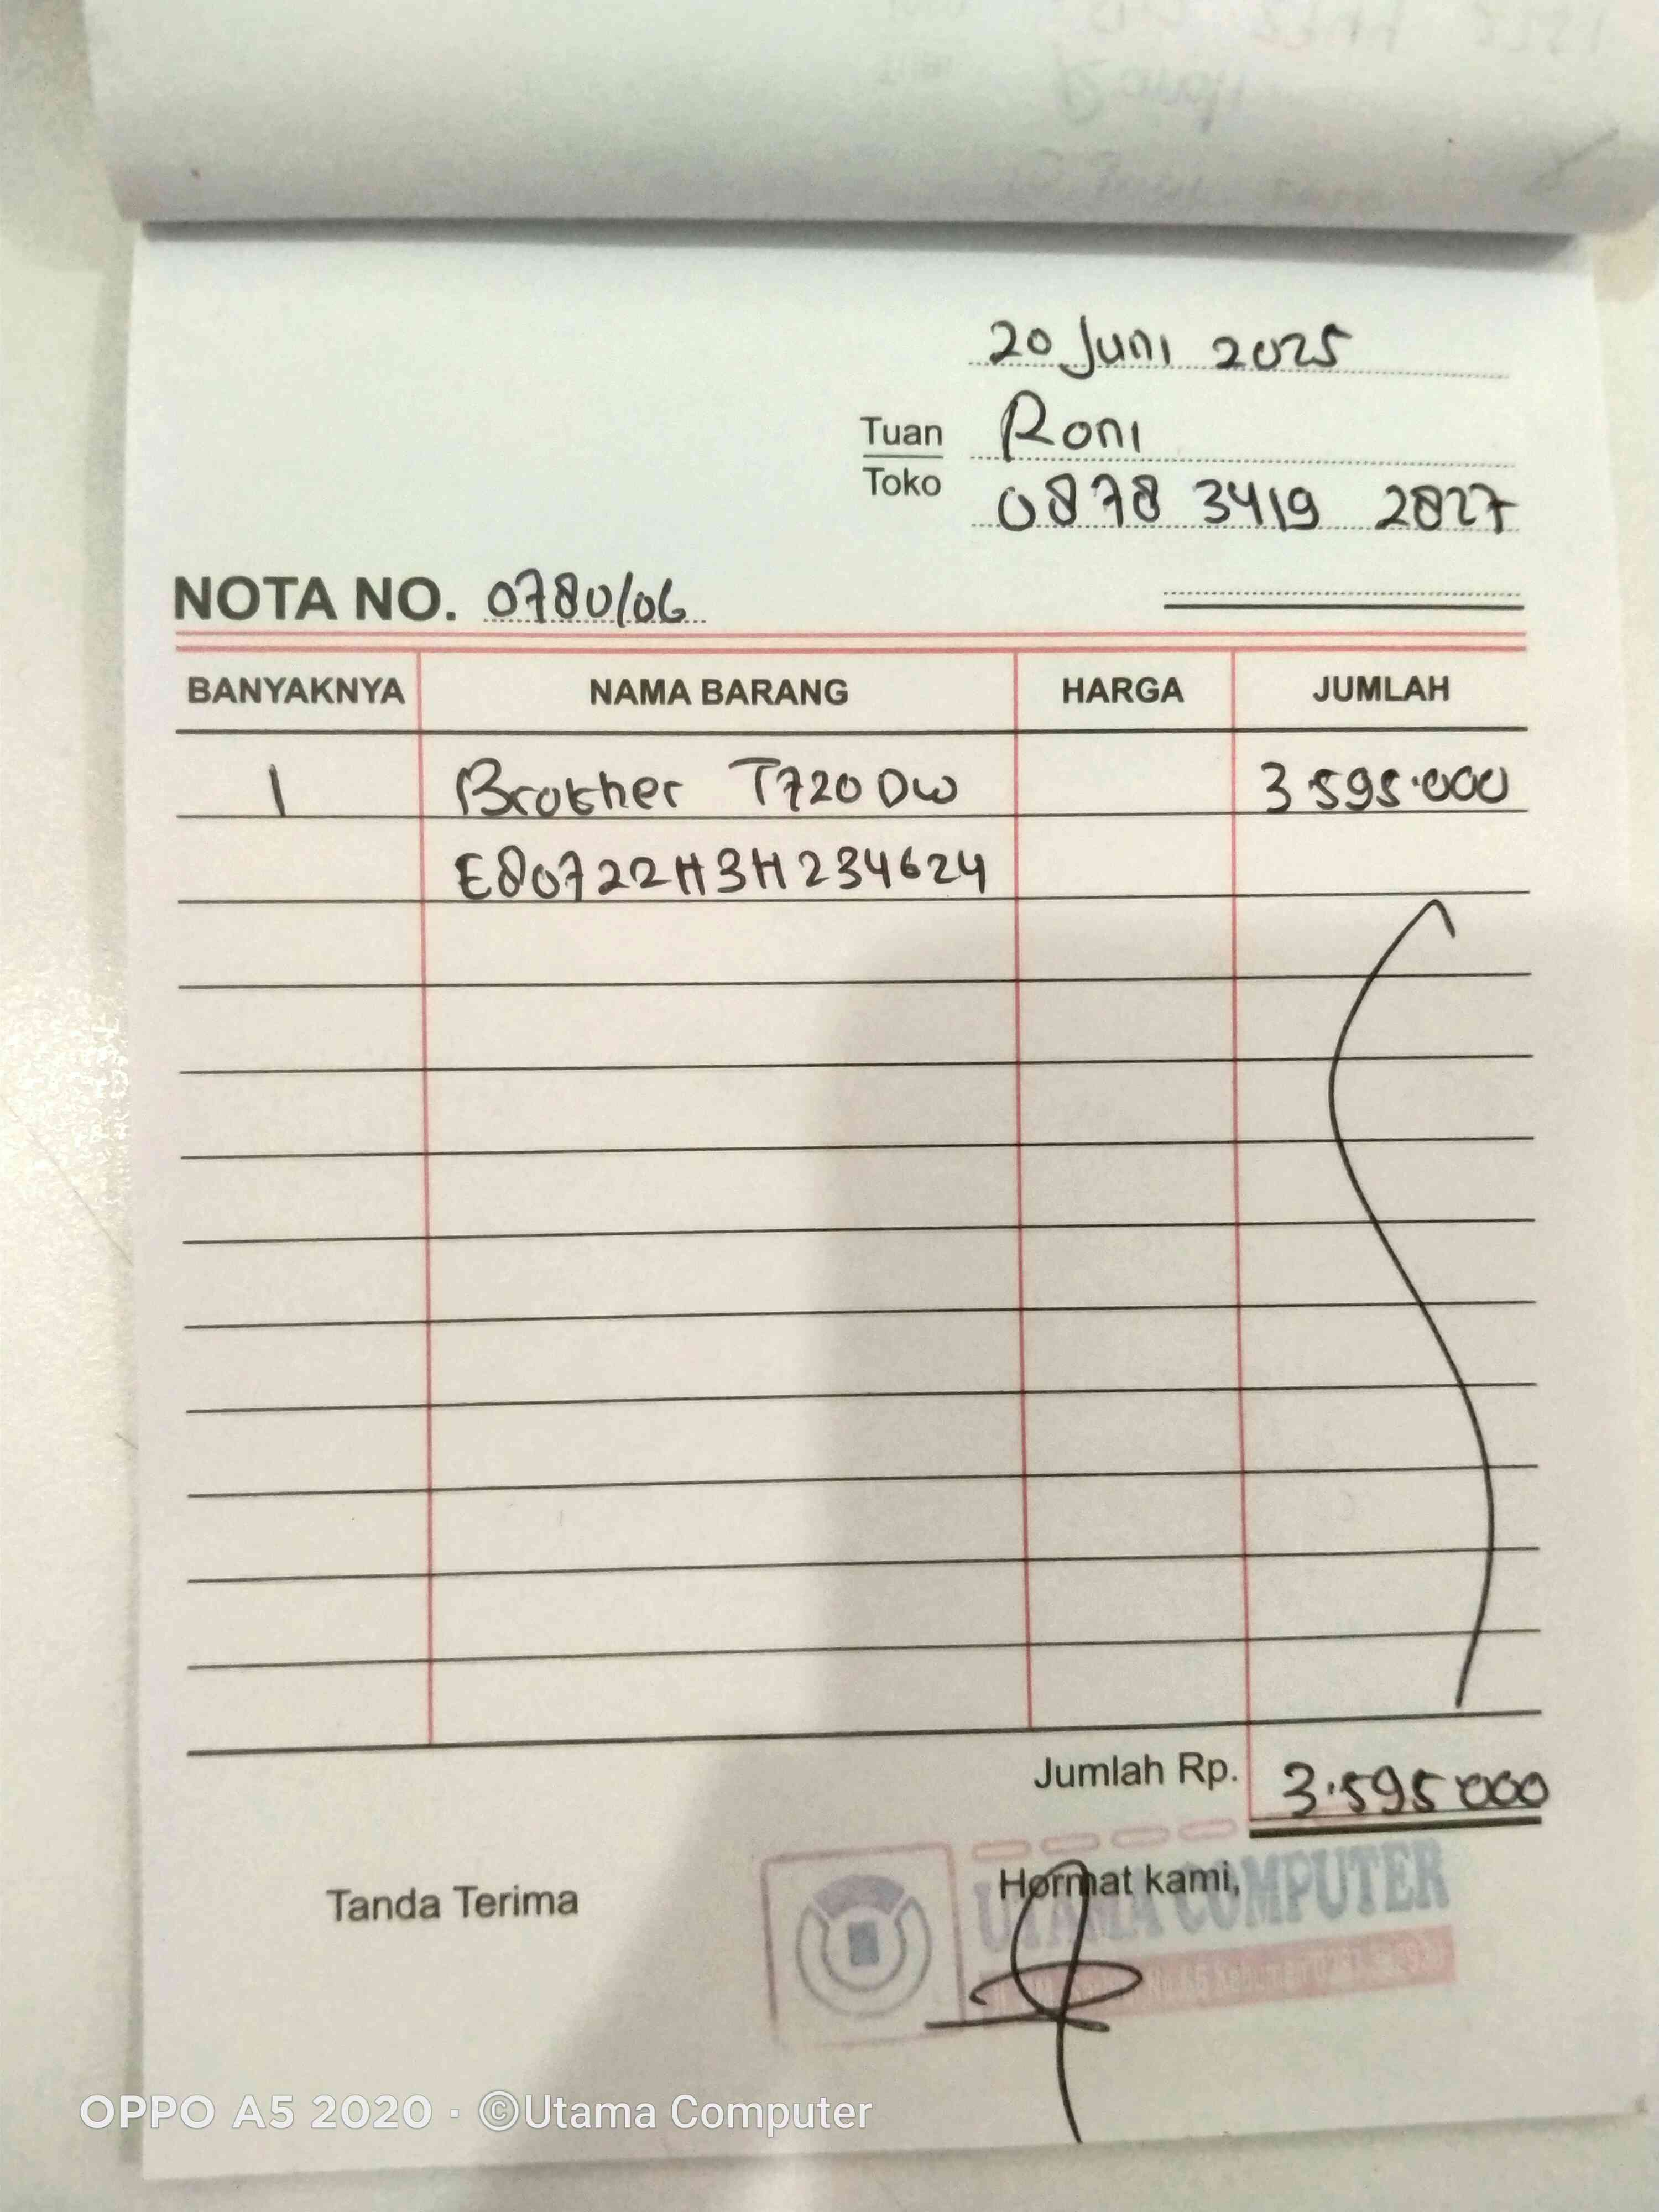 20 Juni 2025
Tuan Roni
Toko 0878 3419 2827
NOTA NO. 0780/06
BANYAKNYA NAMA BARANG HARGA JUMLAH
1 Brother T720DW 3.595.000
E80722H3H234624
Jumlah Rp. 3.595.000
Tanda Terima Hormat kami,
UTAMA COMPUTER
OPPO A5 2020 · ©Utama Computer